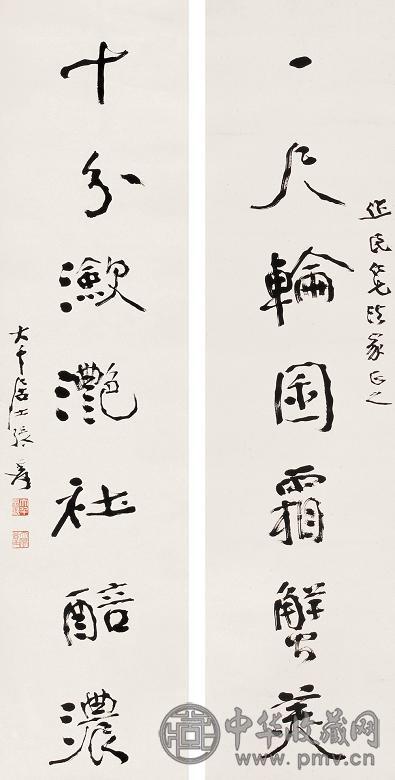 法家正之
一尺輪囷霜蟹美
十分瀲灩社醅濃
大千居士張爰
中华收藏网
www.pmv.cn